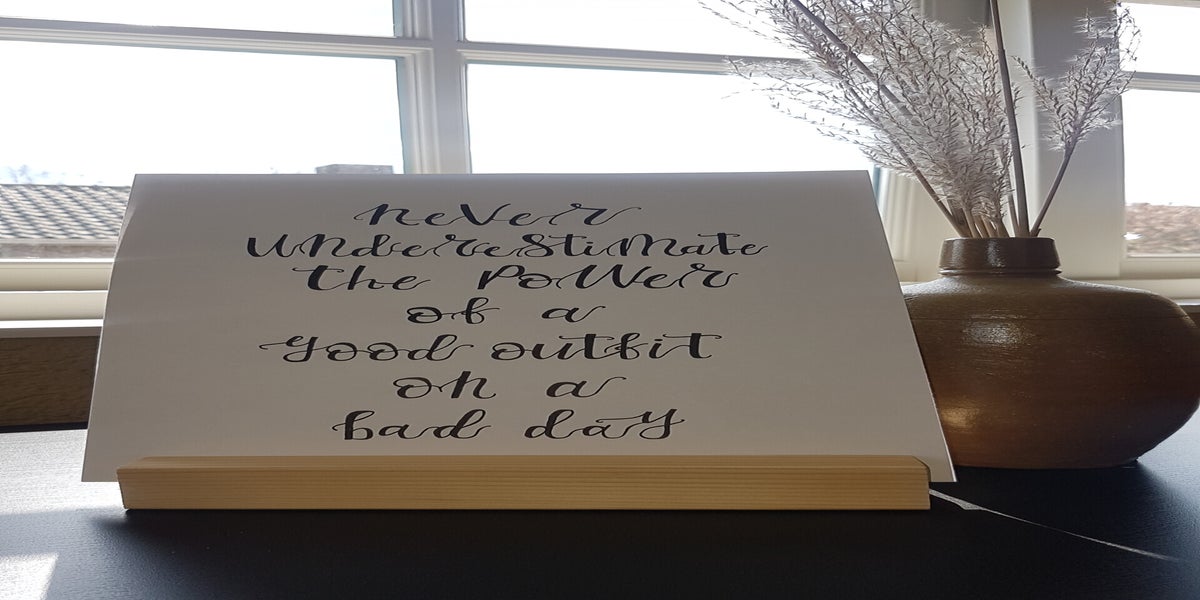 never
underestimate
the power
of a
good outfit
on a
bad day